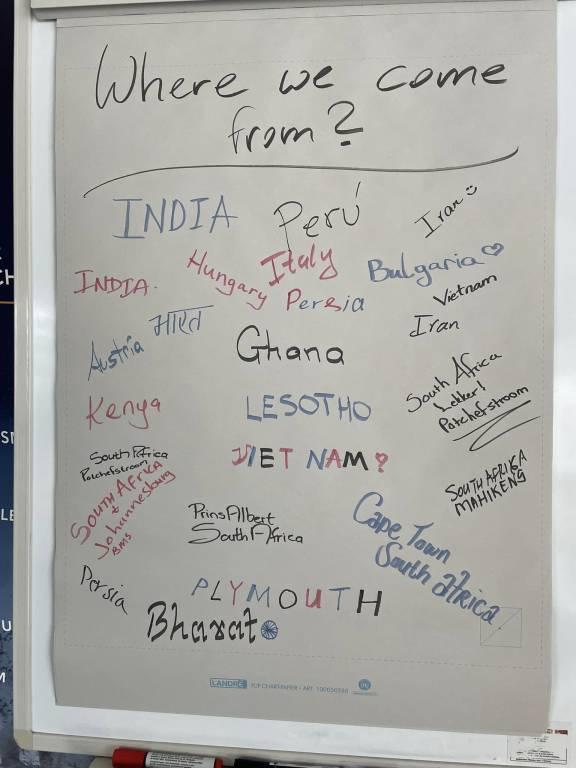 Where we come
from?
INDIA
Perú
Iran
INDIA.
Hungary
Italy
Bulgaria
Persia
Vietnam
भारत
Iran
Austria
Ghana
South Africa
Lekker!
Potchefstroom
Kenya
LESOTHO
South Africa
Potchefstroom
VIETNAM?
SOUTH AFRICA
+
Johannesburg
BMS
SOUTH AFRIKA
MAHIKENG
Prins Albert
South Africa
Cape Town,
South Africa
Persia
PLYMOUTH
Bharat
LANDRÉ